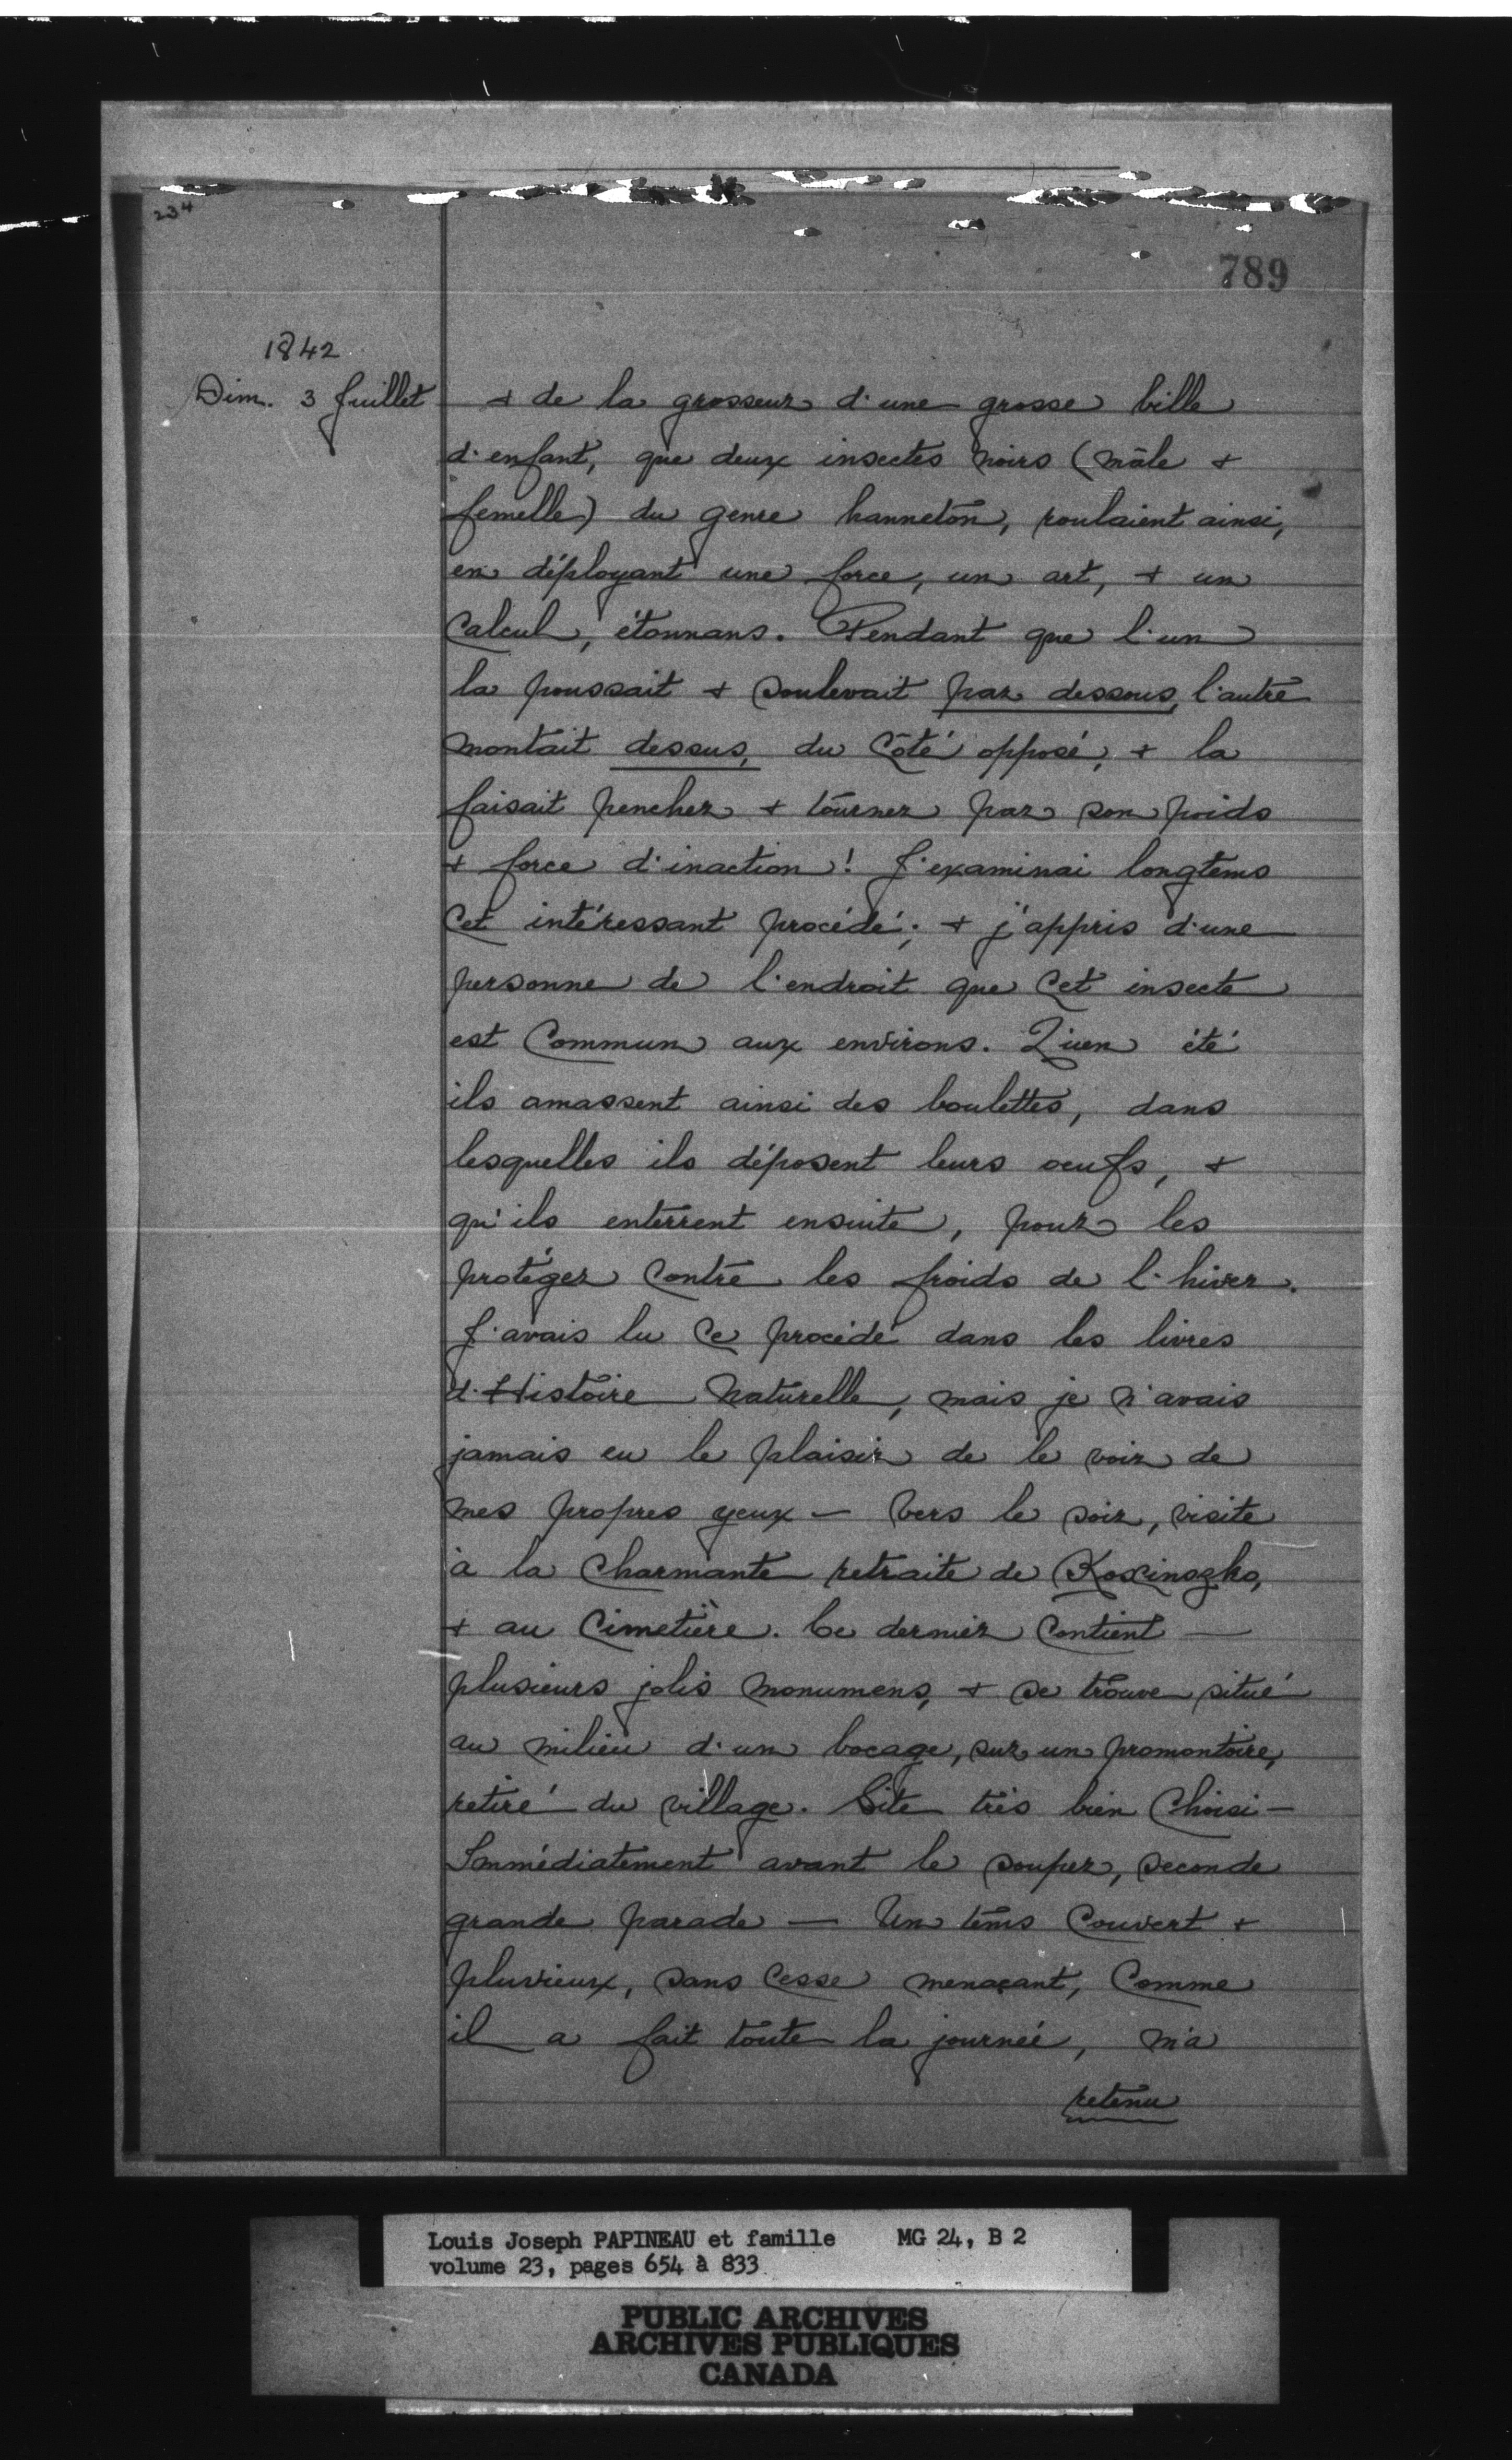 234
789
1842
Dim. 3 Juillet
+ de la grosseur d'une grosse bille
d'enfant, que deux insectes noirs (mâle +
femelle) du genre hanneton, roulaient ainsi,
en déployant une force, un art, + un
Calcul, étonnans. Pendant que l'un
la poussait + soulevait par dessous, l'autre
montait dessus, du Côté opposé, + la
faisait pencher + tourner par son poids
+ force d'inaction! J'examinai longtems
Cet intéressant procédé; + j'appris d'une
personne de l'endroit que Cet insecte
est Commun aux environs. Qu'en été
ils amassent ainsi des boulettes, dans
lesquelles ils déposent leurs oeufs, +
qu'ils enterrent ensuite, pour les
protéger Contre les froids de l'hiver.
J'avais lu Ce procédé dans les livres
d'Histoire Naturelle, mais je n'avais
jamais eu le plaisir de le voir de
mes propres yeux — Vers le soir, visite
à la Charmante retraite de Koscinozko,
+ au Cimetière. Ce dernier Contient —
plusieurs jolis monumens, + se trouve situé
au milieu d'un bocage, sur un promontoire,
retiré du village. Site très bien Choisi —
Immédiatement avant le souper, seconde
grande parade — Un tems Couvert +
pluvieux, sans Cesse menaçant, Comme
il a fait toute la journée, m'a
retenu
Louis Joseph PAPINEAU et famille MG 24, B 2
volume 23, pages 654 à 833
PUBLIC ARCHIVES
ARCHIVES PUBLIQUES
CANADA